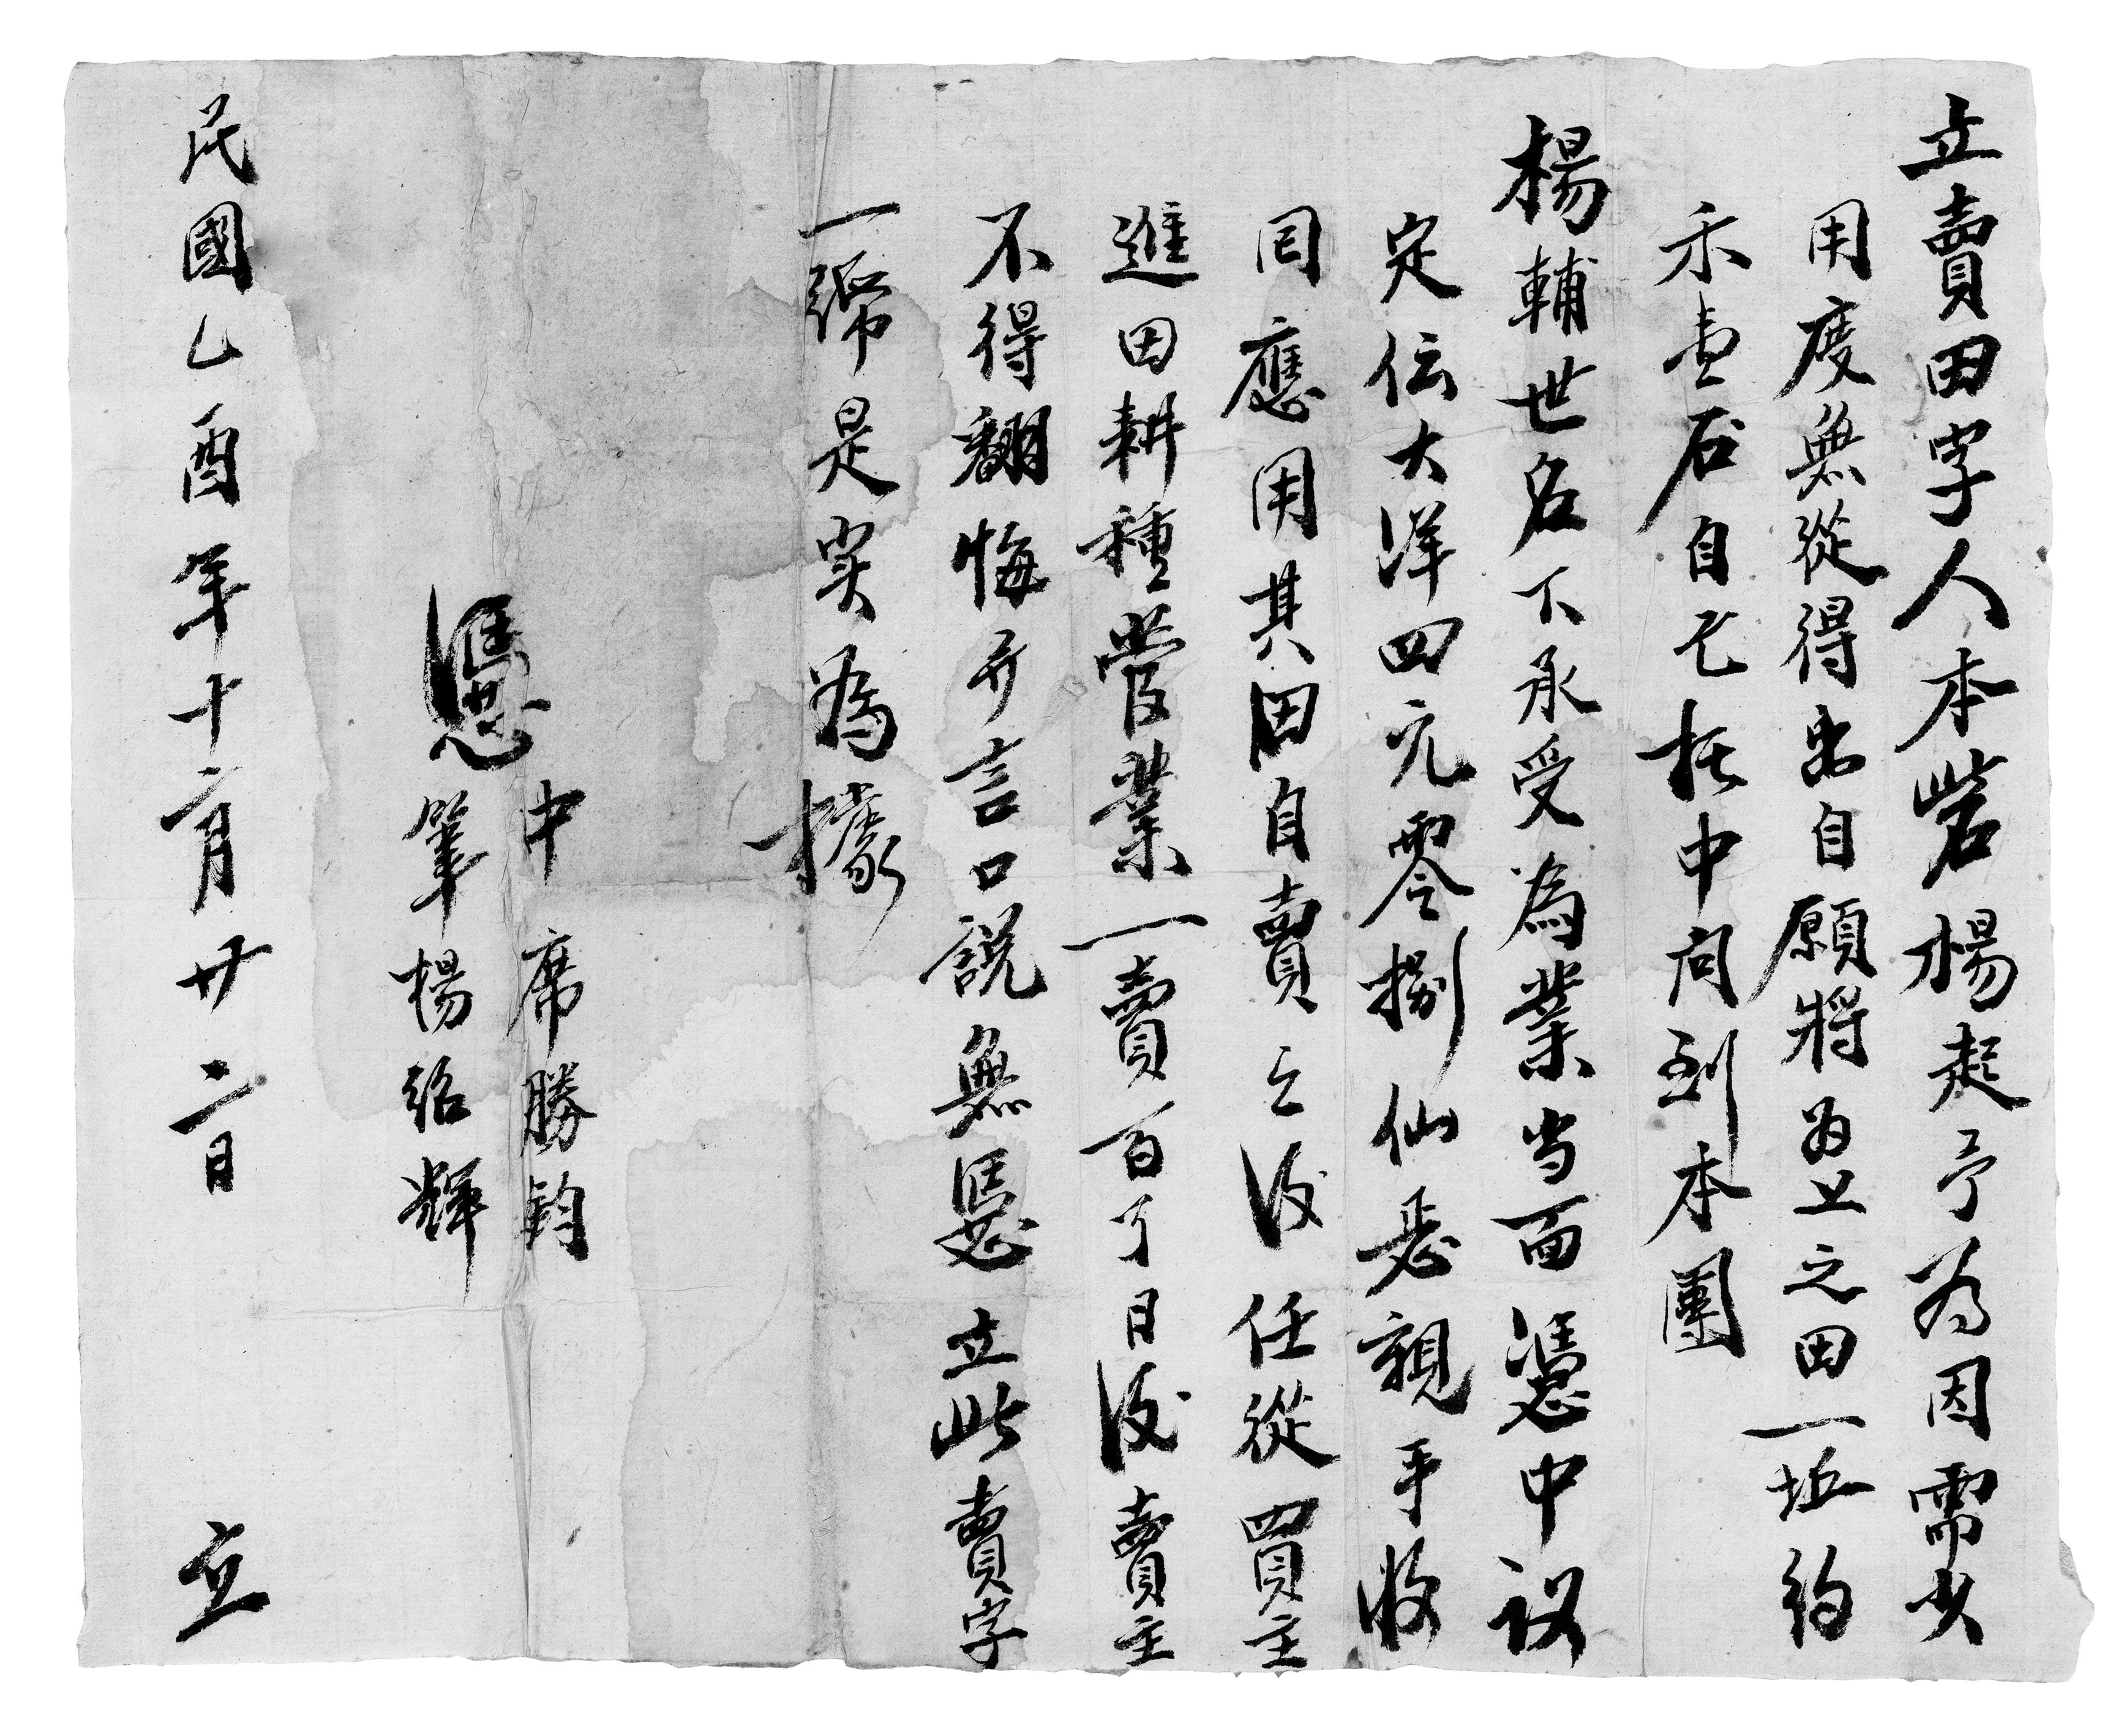 立賣田字人本砦楊起予為因需少
用度無從得出自願將 之田一坵約
禾壹石自己托中问到本團
楊輔世名下承受為業当面憑中议
定伝大洋四元零捌仙 親手收
囘應用其田自賣之後任從買主
進田耕種管業一賣百了日後賣主
不得翻悔斤言口説無憑立此賣字
一㡧是实為據
憑中席勝鈞
筆楊紹輝
民國乙酉年十二月廿二日立